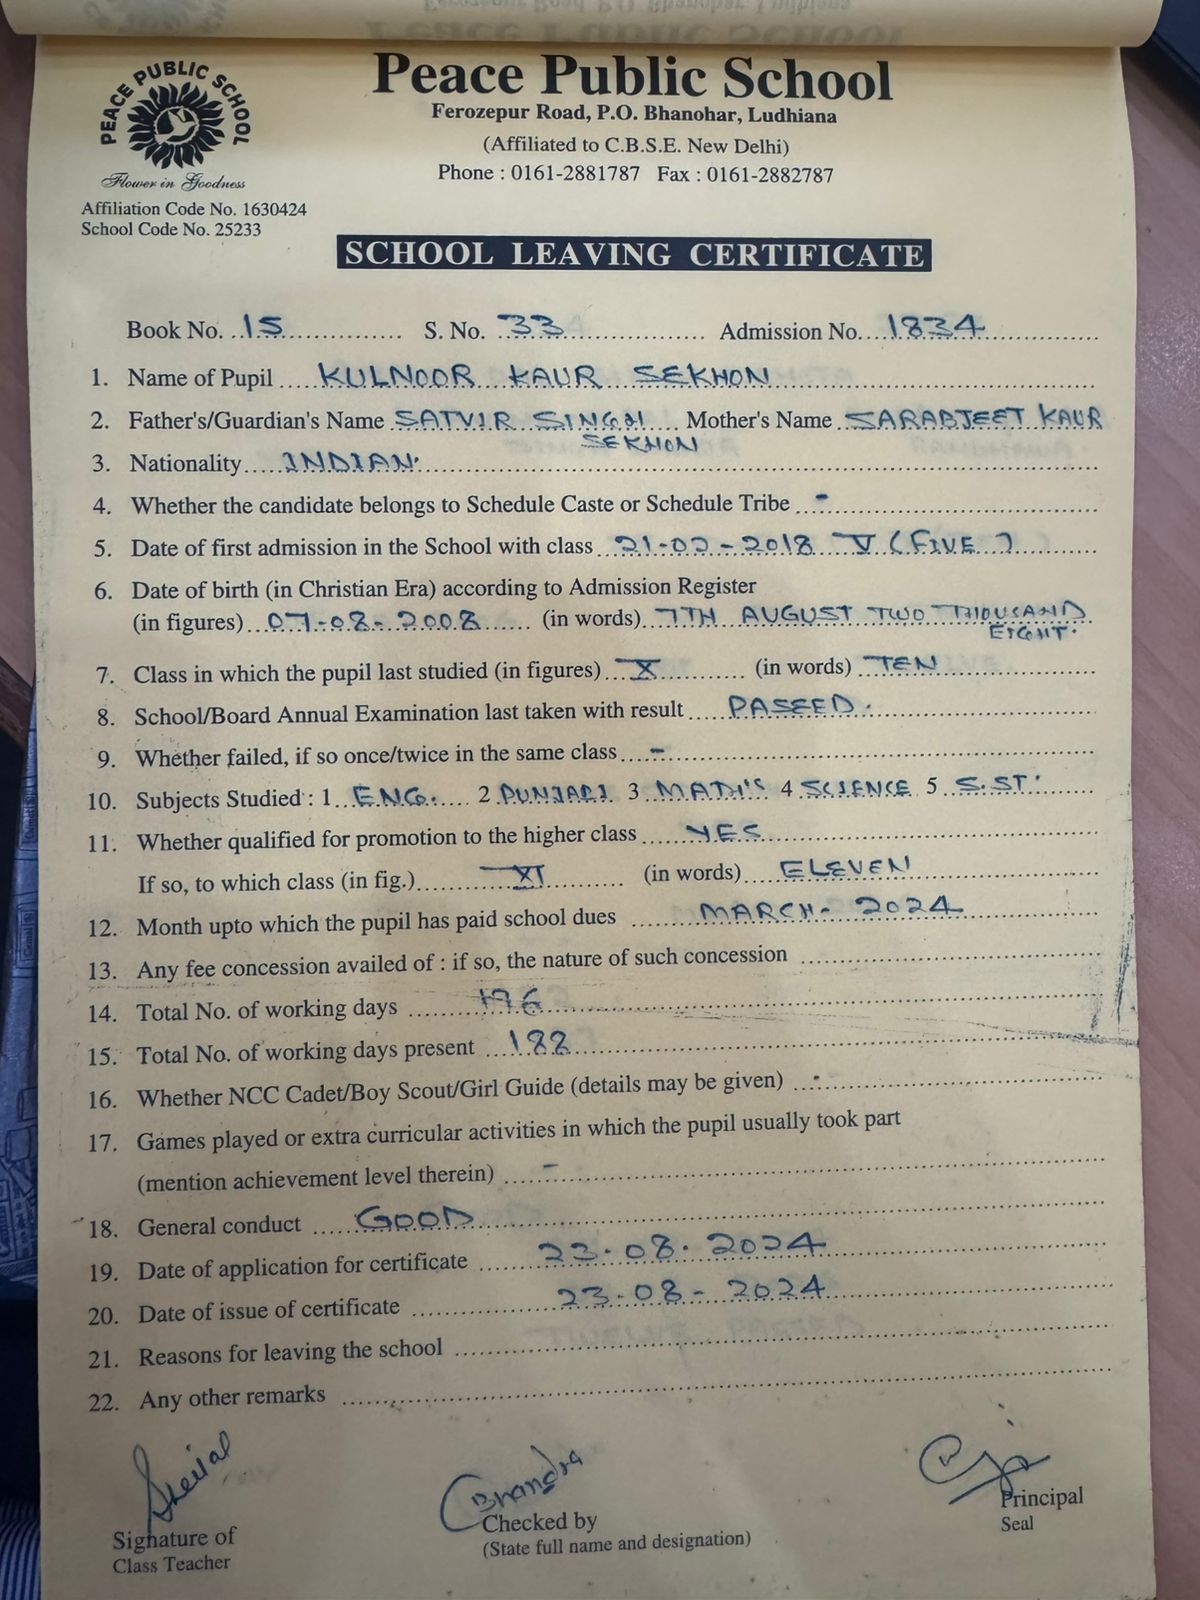 Peace Public School
Ferozepur Road, P.O. Bhanohar, Ludhiana
(Affiliated to C.B.S.E. New Delhi)
Phone : 0161-2881787 Fax : 0161-2882787
PEACE PUBLIC SCHOOL
Flower in Goodness
Affiliation Code No. 1630424
School Code No. 25233
SCHOOL LEAVING CERTIFICATE
Book No. 15 S. No. 33 Admission No. 1834
1. Name of Pupil KULNOOR KAUR SEKHON
2. Father's/Guardian's Name SATVIR SINGH SEKHON Mother's Name SARABJEET KAUR
3. Nationality INDIAN.
4. Whether the candidate belongs to Schedule Caste or Schedule Tribe -
5. Date of first admission in the School with class 21-02-2018 V (FIVE)
6. Date of birth (in Christian Era) according to Admission Register
(in figures) 07-08-2008 (in words) 7TH AUGUST TWO THOUSAND EIGHT.
7. Class in which the pupil last studied (in figures) X (in words) TEN
8. School/Board Annual Examination last taken with result PASSED.
9. Whether failed, if so once/twice in the same class -
10. Subjects Studied : 1 ENG. 2 PUNJABI 3 MATH'S 4 SCIENCE 5 S.ST.
11. Whether qualified for promotion to the higher class YES
If so, to which class (in fig.) XI (in words) ELEVEN
12. Month upto which the pupil has paid school dues MARCH- 2024
13. Any fee concession availed of : if so, the nature of such concession
14. Total No. of working days 196
15. Total No. of working days present 188
16. Whether NCC Cadet/Boy Scout/Girl Guide (details may be given) -
17. Games played or extra curricular activities in which the pupil usually took part
(mention achievement level therein) -
18. General conduct GOOD
19. Date of application for certificate 23.08.2024
20. Date of issue of certificate 23-08-2024
21. Reasons for leaving the school
22. Any other remarks
Signature of
Class Teacher
Checked by
(State full name and designation)
Principal
Seal